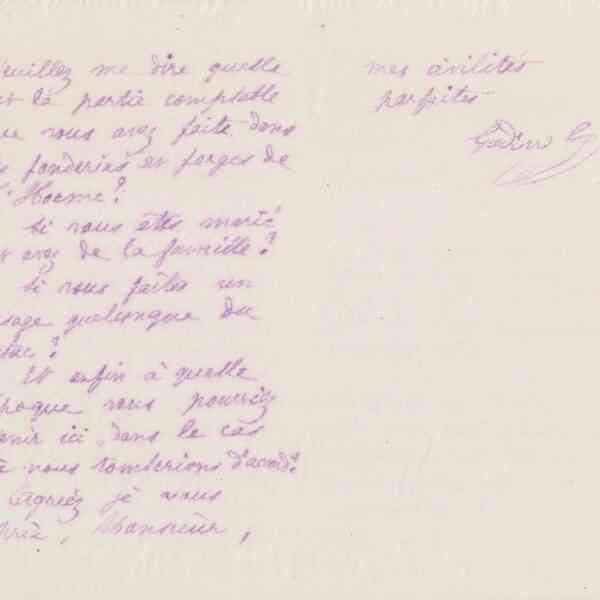 euillez me dire quelle
la partie comptable
ue vous avez faite dans
s fonderies et forges de
l'Horme?
Si vous êtes marié
avez de la famille?
Si vous faites un
sage quelconque du
bac?
Et enfin à quelle
poque vous pourriez
enir ici, dans le cas
où nous tomberions d'accord?
Agréez je vous
prie, Monsieur,
mes civilités
parfaites
Godin